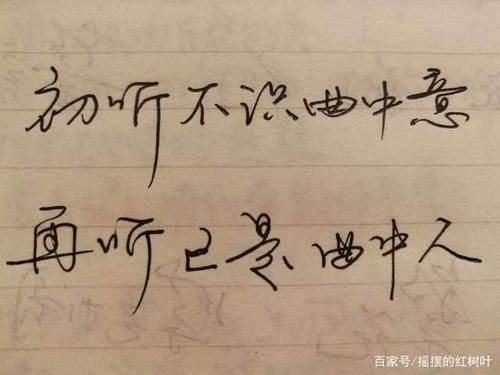 初听不识曲中意
再听已是曲中人
百家号/摇摆的红树叶